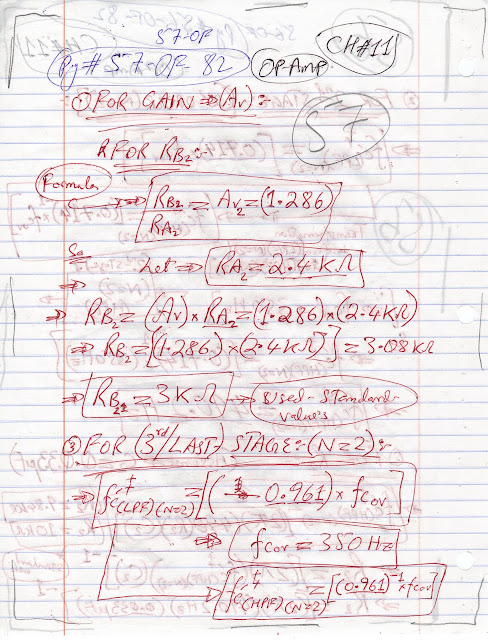 57-OP
Pg# 57-OP-82
OP-Amp
CH#11
57
① FOR GAIN ⇒ (Av):-
FOR RB2:-
Formula
RB2/RA2 = Av2 = (1.286)
So
Let ⇒ RA2 = 2.4KΩ
⇒ RB2 = (Av) × RA2 = (1.286) × (2.4KΩ)
⇒ RB2 = [(1.286) × (2.4KΩ)] = 3.08KΩ
⇒ RB2 = 3KΩ → Used-Standard-Value's
③ FOR (3rd/LAST) STAGE:-(N=2):-
⇒ fc(LPF)(N=2) = [(0.961) × fcov]
⇒ fcov = 350Hz
fc(HPF)(N=2) = [(0.961)⁻¹ × fcov]